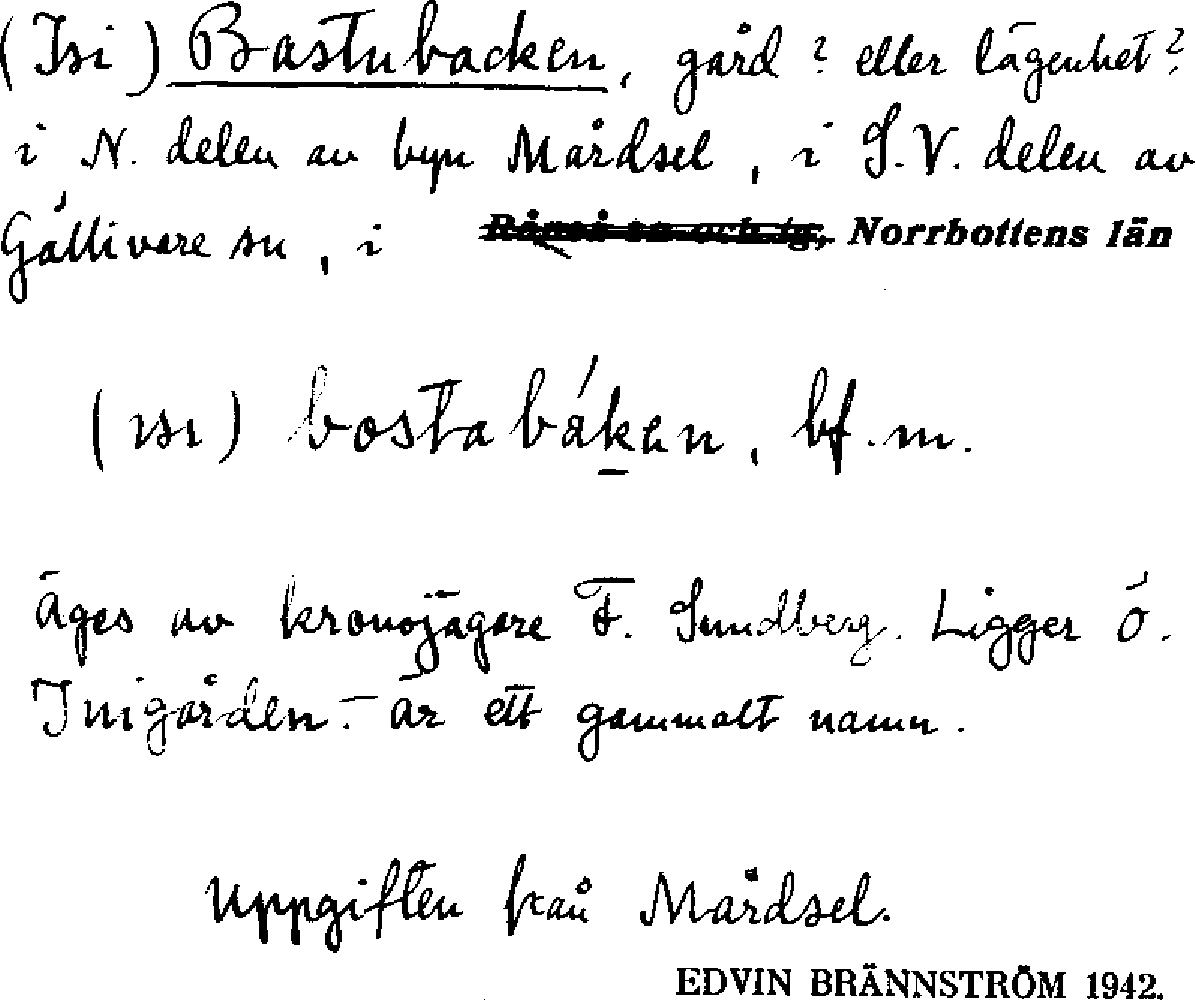 (Isi) Bastubacken, gård? eller lägenhet?
i N. delen av byn Mårdsel, i S.V. delen av
Gällivare sn, i Råneå sn och tg, Norrbottens län
(ısı) bostabákan, bf. m.
äges av kronojägare F. Sundberg. Ligger ö.
Inigården. – är ett gammalt namn.
Uppgiften från Mårdsel.
EDVIN BRÄNNSTRÖM 1942.